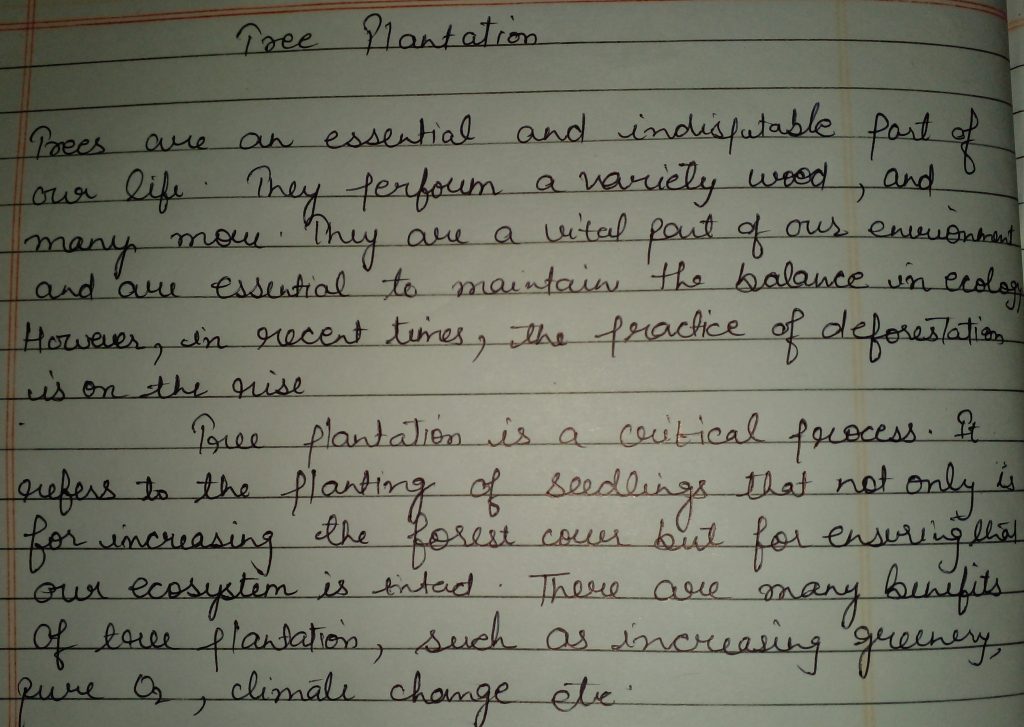 Tree Plantation
Trees are an essential and indisputable part of
our life. They perform a variety wood, and
many more. They are a vital part of our environment
and are essential to maintain the balance in ecology
However, in recent times, the practice of deforestation
is on the rise
Tree plantation is a critical process. It
refers to the planting of seedlings that not only is
for increasing the forest cover but for ensuring that
our ecosystem is intact. There are many benifits
of tree plantation, such as increasing greenery,
pure O₂, climate change etc.